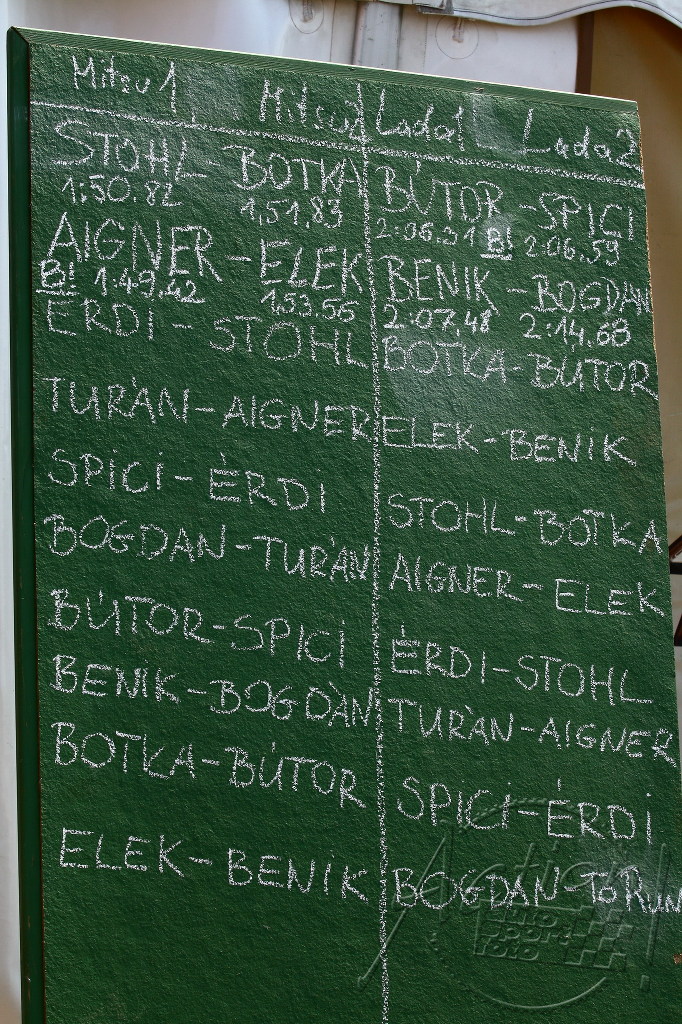 Mitsu 1 Mitsu2 Lada1 Lada2
STOHL - BOTKA BÚTOR - SPICI
1:50.82 1,51,83 2:06.31 B! 2:06.59
AIGNER - ELEK BENIK - BOGDÁN
B! 1:49.42 1.53.56 2:07.48 2:14.68
ÉRDI - STOHL BOTKA - BÚTOR
TURÁN - AIGNER ELEK - BENIK
SPICI - ÉRDI STOHL - BOTKA
BOGDAN - TURÁN AIGNER - ELEK
BÚTOR - SPICI ÉRDI - STOHL
BENIK - BOGDÁN TURÁN - AIGNER
BOTKA - BÚTOR SPICI - ÉRDI
ELEK - BENIK BOGDÁN - ToRun
Action!
auto
sport
foto